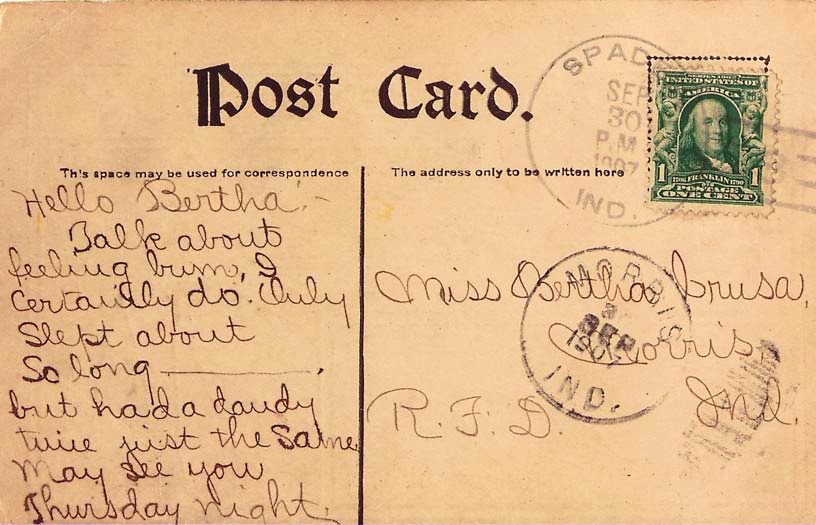 Post Card.
SPAD
SEP
30
P.M
1907
IND.
SERIES 1902
UNITED STATES OF
AMERICA
1 1706 FRANKLIN 1790 1
POSTAGE
ONE CENT
This space may be used for correspondence
The address only to be written here
Hello Bertha:-
Talk about
feeling bum, I
Certainly do. Only
Slept about
So long ———.
but had a dandy
time just the Same
May see you
Thursday night.
Miss Bertha Crusa,
Morris,
R.F.D. Ind.
MORRIS
SEP
1907
IND.